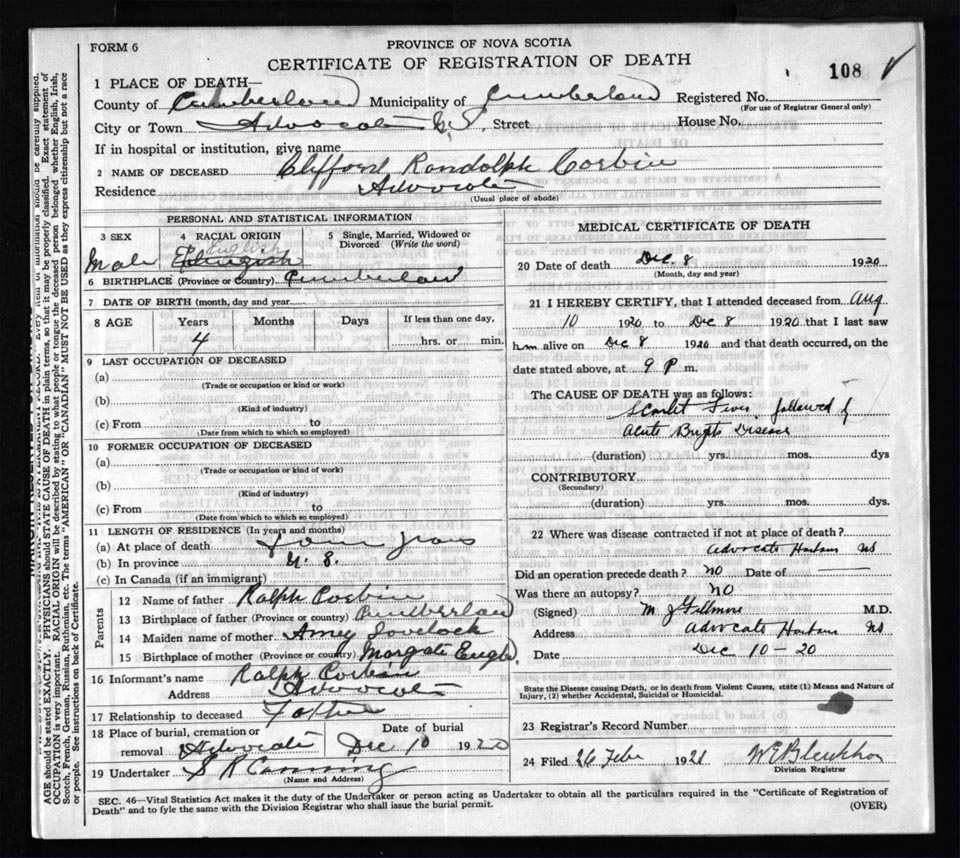 FORM 6
PROVINCE OF NOVA SCOTIA
CERTIFICATE OF REGISTRATION OF DEATH
108
1 PLACE OF DEATH—
County of Cumberland Municipality of Cumberland Registered No.
(For use of Registrar General only)
City or Town Advocate N.S. Street House No.
If in hospital or institution, give name
2 NAME OF DECEASED Clifford Randolph Corbin
Residence Advocate
(Usual place of abode)
PERSONAL AND STATISTICAL INFORMATION
3 SEX 4 RACIAL ORIGIN 5 Single, Married, Widowed or Divorced (Write the word)
Male English
6 BIRTHPLACE (Province or Country) Cumberland
7 DATE OF BIRTH (month, day and year)
8 AGE Years Months Days If less than one day,
4 hrs. or min.
9 LAST OCCUPATION OF DECEASED
(a)
(Trade or occupation or kind or work)
(b)
(Kind of industry)
(c) From to
(Date from which to which so employed)
10 FORMER OCCUPATION OF DECEASED
(a)
(Trade or occupation or kind of work)
(b)
(Kind of industry)
(c) From to
(Date from which to which so employed)
11 LENGTH OF RESIDENCE (In years and months)
(a) At place of death four years
(b) In province
(c) In Canada (if an immigrant)
Parents
12 Name of father Ralph Corbin
13 Birthplace of father (Province or country) Cumberland
14 Maiden name of mother Amey Lovelock
15 Birthplace of mother (Province or country) Margate Engl
16 Informant's name Ralph Corbin
Address Advocate
17 Relationship to deceased Father
18 Place of burial, cremation or removal Advocate Date of burial Dec 10 1920
19 Undertaker S R Canning
(Name and Address)
MEDICAL CERTIFICATE OF DEATH
20 Date of death Dec. 8 1920
(Month, day and year)
21 I HEREBY CERTIFY, that I attended deceased from Aug
10 1920 to Dec 8 1920 that I last saw
him alive on Dec 8 1920 and that death occurred, on the
date stated above, at 9 P m.
The CAUSE OF DEATH was as follows:
Scarlet Fever followed by
Acute Brights Disease
(duration) yrs. mos. dys
CONTRIBUTORY
(Secondary)
(duration) yrs. mos. dys.
22 Where was disease contracted if not at place of death?
Advocate Harbour NS
Did an operation precede death? NO Date of
Was there an autopsy? NO
(Signed) M J Fillmore M.D.
Address Advocate Harbour NS
Date Dec 10 - 20
State the Disease causing Death, or in death from Violent Causes, state (1) Means and Nature of
Injury, (2) whether Accidental, Suicidal or Homicidal.
23 Registrar's Record Number
24 Filed 26 Febr 1921
Division Registrar
SEC. 46—Vital Statistics Act makes it the duty of the Undertaker or person acting as Undertaker to obtain all the particulars required in the "Certificate of Registration of
Death" and to fyle the same with the Division Registrar who shall issue the burial permit. (OVER)
AGE should be stated EXACTLY. PHYSICIANS should STATE CAUSE OF DEATH in plain terms, so that it may be properly classified. Exact statement of
OCCUPATION is very important. RACIAL ORIGIN will be described by stating to what people or tongue the deceased person belonged, whether English, Irish,
Scotch, French, German, Russian, Ruthenian, etc. The terms "AMERICAN" OR "CANADIAN" MUST NOT BE USED as they express citizenship but not a race
or people. See instructions on back of Certificate.